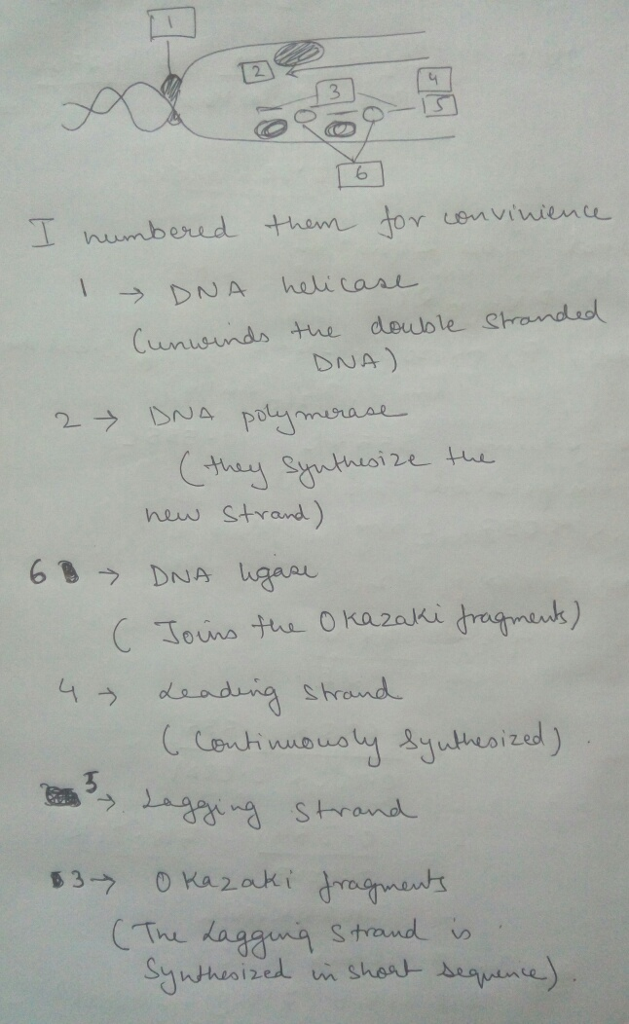 1
2
3
4
5
6
I numbered them for convinience
1 → DNA helicase
(unwinds the double stranded
DNA)
2 → DNA polymerase
(they synthesize the
new strand)
6 → DNA ligase
( Joins the Okazaki fragments)
4 → Leading strand
( Continuously synthesized) .
5 → Lagging strand
3 → Okazaki fragments
(The Lagging strand is
synthesized in short sequence) .